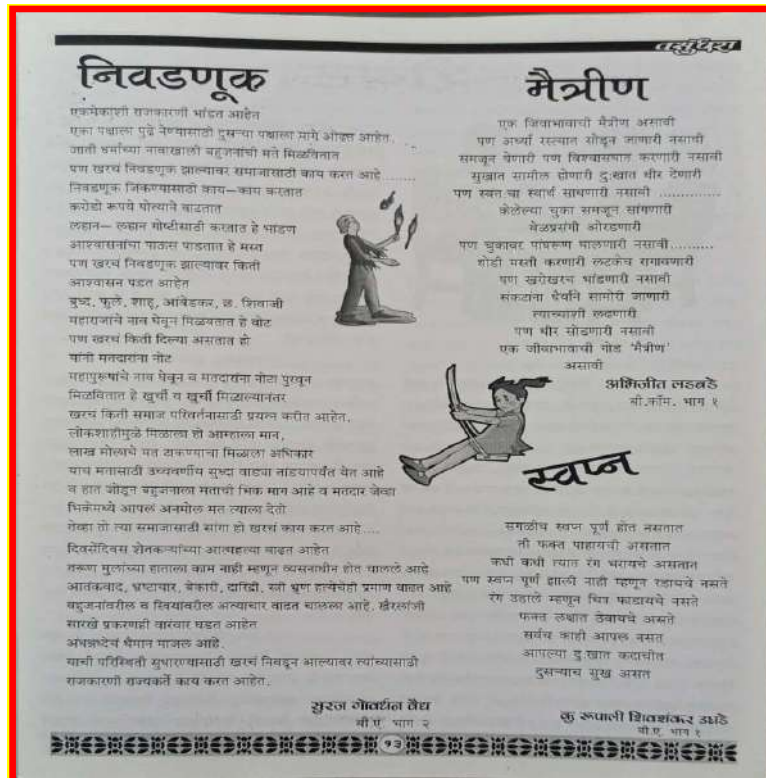 वसुंधरा
निवडणूक
एकमेकांशी राजकारणी भांडत आहेत
एका पक्षाला पुढे नेण्यासाठी दुसऱ्या पक्षाला मागे ओढत आहेत.
जाती धर्माच्या नावाखाली बहुजनांची मते मिळवितात
पण खरचं निवडणूक झाल्यावर समाजासाठी काय करत आहे........
निवडणूक जिंकण्यासाठी काय–काय करतात
करोडो रूपये पोत्याने वाढतात
लहान– लहान गोष्टीसाठी करतात हे भांडण
आश्वासनांचा पाऊस पाडतात हे मस्त
पण खरचं निवडणूक झाल्यावर किती
आश्वासन पडत आहेत
बुध्द, फूले, शाहू, आंबेडकर, छ. शिवाजी
महाराजांचे नाव घेवून मिळवतात हे वोट
पण खरचं किती दिल्या असतात हो
यांनी मतदारांना नोट
महापुरूषांचे नाव घेवून व मतदारांना नोटा पुरवून
मिळवितात हे खुर्ची व खुर्ची मिळाल्यानंतर
खरचं किती समाज परिवर्तनासाठी प्रयत्न करीत आहेत.
लोकशाहीमुळे मिळाला हो आम्हाला मान,
लाख मोलाचे मत टाकण्याचा मिळाला अधिकार
याच मतासाठी उच्चवर्णीय सुध्दा वाड्या तांड्यापर्यंत येत आहे
व हात जोडून बहुजनाला मताची भिक माग आहे व मतदार जेव्हा
भिकेमध्ये आपलं अनमोल मत त्याला देतो
तेव्हा तो त्या समाजासाठी सांगा हो खरचं काय करत आहे....
दिवसेंदिवस शेतकऱ्यांच्या आत्महत्या वाढत आहेत
तरूण मुलांच्या हाताला काम नाही म्हणून व्यसनाधीन होत चालले आहे
आतंकवाद, भ्रष्टाचार, बेकारी, दारिद्री, स्त्री भ्रूण हत्येचेही प्रमाण वाढत आहे
बहुजनांवरील व स्त्रियांवरील अत्याचार वाढत चालला आहे. खैरलांजी
सारखे प्रकरणही वारंवार घडत आहेत
अंधश्रध्देचं थैमान माजल आहे.
याची परिस्थिती सुधारण्यासाठी खरचं निवडून आल्यावर त्यांच्यासाठी
राजकारणी राज्यकर्ते काय करत आहेत.
सुरज गोवर्धन वैद्य
बी.ए. भाग २
मैत्रीण
एक जिवाभावाची मैत्रीण असावी
पण अर्ध्या रस्त्यात सोडून जाणारी नसावी
समजून घेणारी पण विश्वासघात करणारी नसावी
सुखात सामील होणारी दुःखात धीर देणारी
पण स्वतःचा स्वार्थ साधणारी नसावी ..............
केलेल्या चुका समजून सांगणारी
वेळप्रसंगी ओरडणारी
पण चुकावर पांघरूण घालणारी नसावी.........
थोडी मस्ती करणारी लटकेच रागावणारी
पण खरोखरच भांडणारी नसावी
संकटांना धैर्याने सामोरी जाणारी
त्याच्याशी लढणारी
पण धीर सोडणारी नसावी
एक जीवाभावाची गोड 'मैत्रीण'
असावी
अभिजीत लडबडे
बी.कॉम. भाग १
स्वप्न
सगळीच स्वप्न पूर्ण होत नसतात
ती फक्त पाहायची असतात
कधी कधी त्यात रंग भरायचे असतात
पण स्वप्न पूर्ण झाली नाही म्हणून रडायचे नसते
रंग उडाले म्हणून चित्र फाडायचे नसते
फक्त लक्षात ठेवायचे असते
सर्वच काही आपलं नसत
आपल्या दुःखात कदाचीत
दुसऱ्याच सुख असत
कु रूपाली शिवशंकर उघडे
बी.ए. भाग १
१३